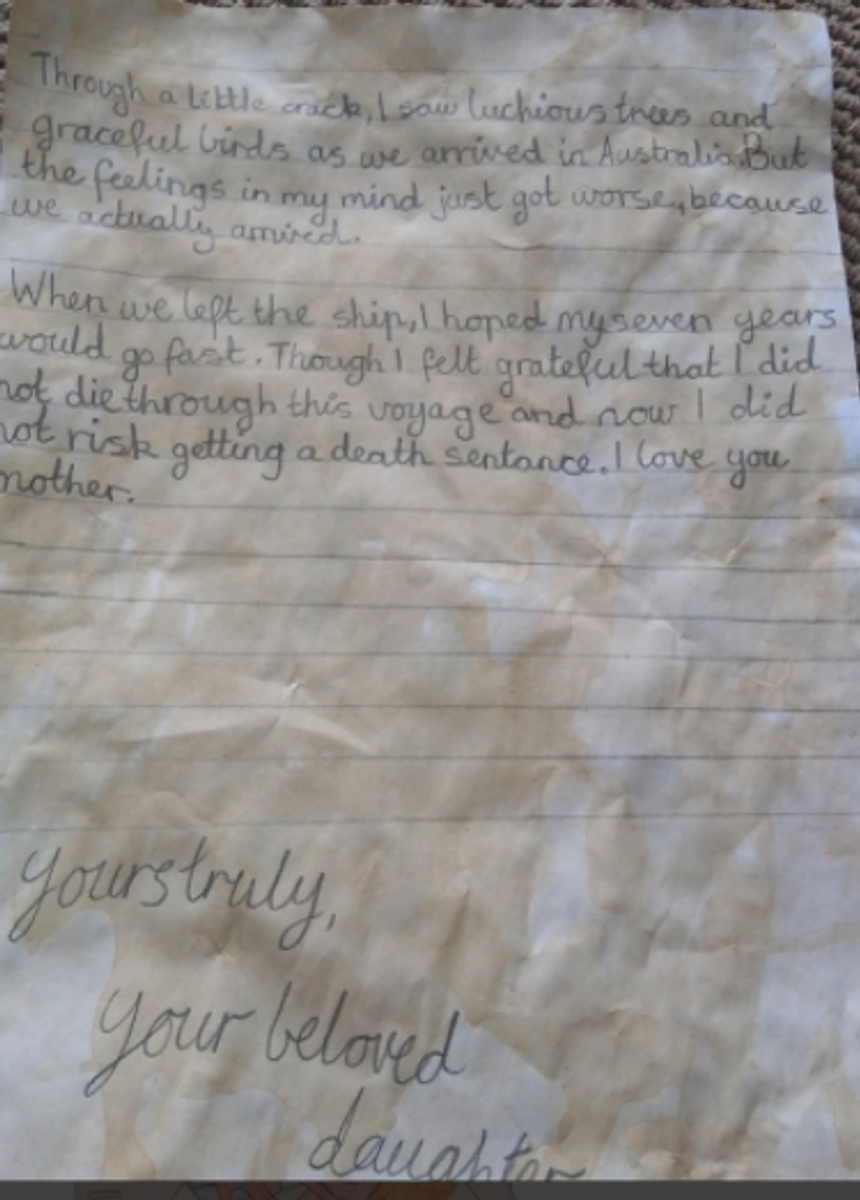 Through a little crack, I saw luchious trees and
graceful birds as we arrived in Australia. But
the feelings in my mind just got worse, because
we actually arrived.
When we left the ship, I hoped my seven years
would go fast. Though I felt grateful that I did
not die through this voyage and now I did
not risk getting a death sentance. I love you
mother.
Yours truly,
Your beloved
daughter